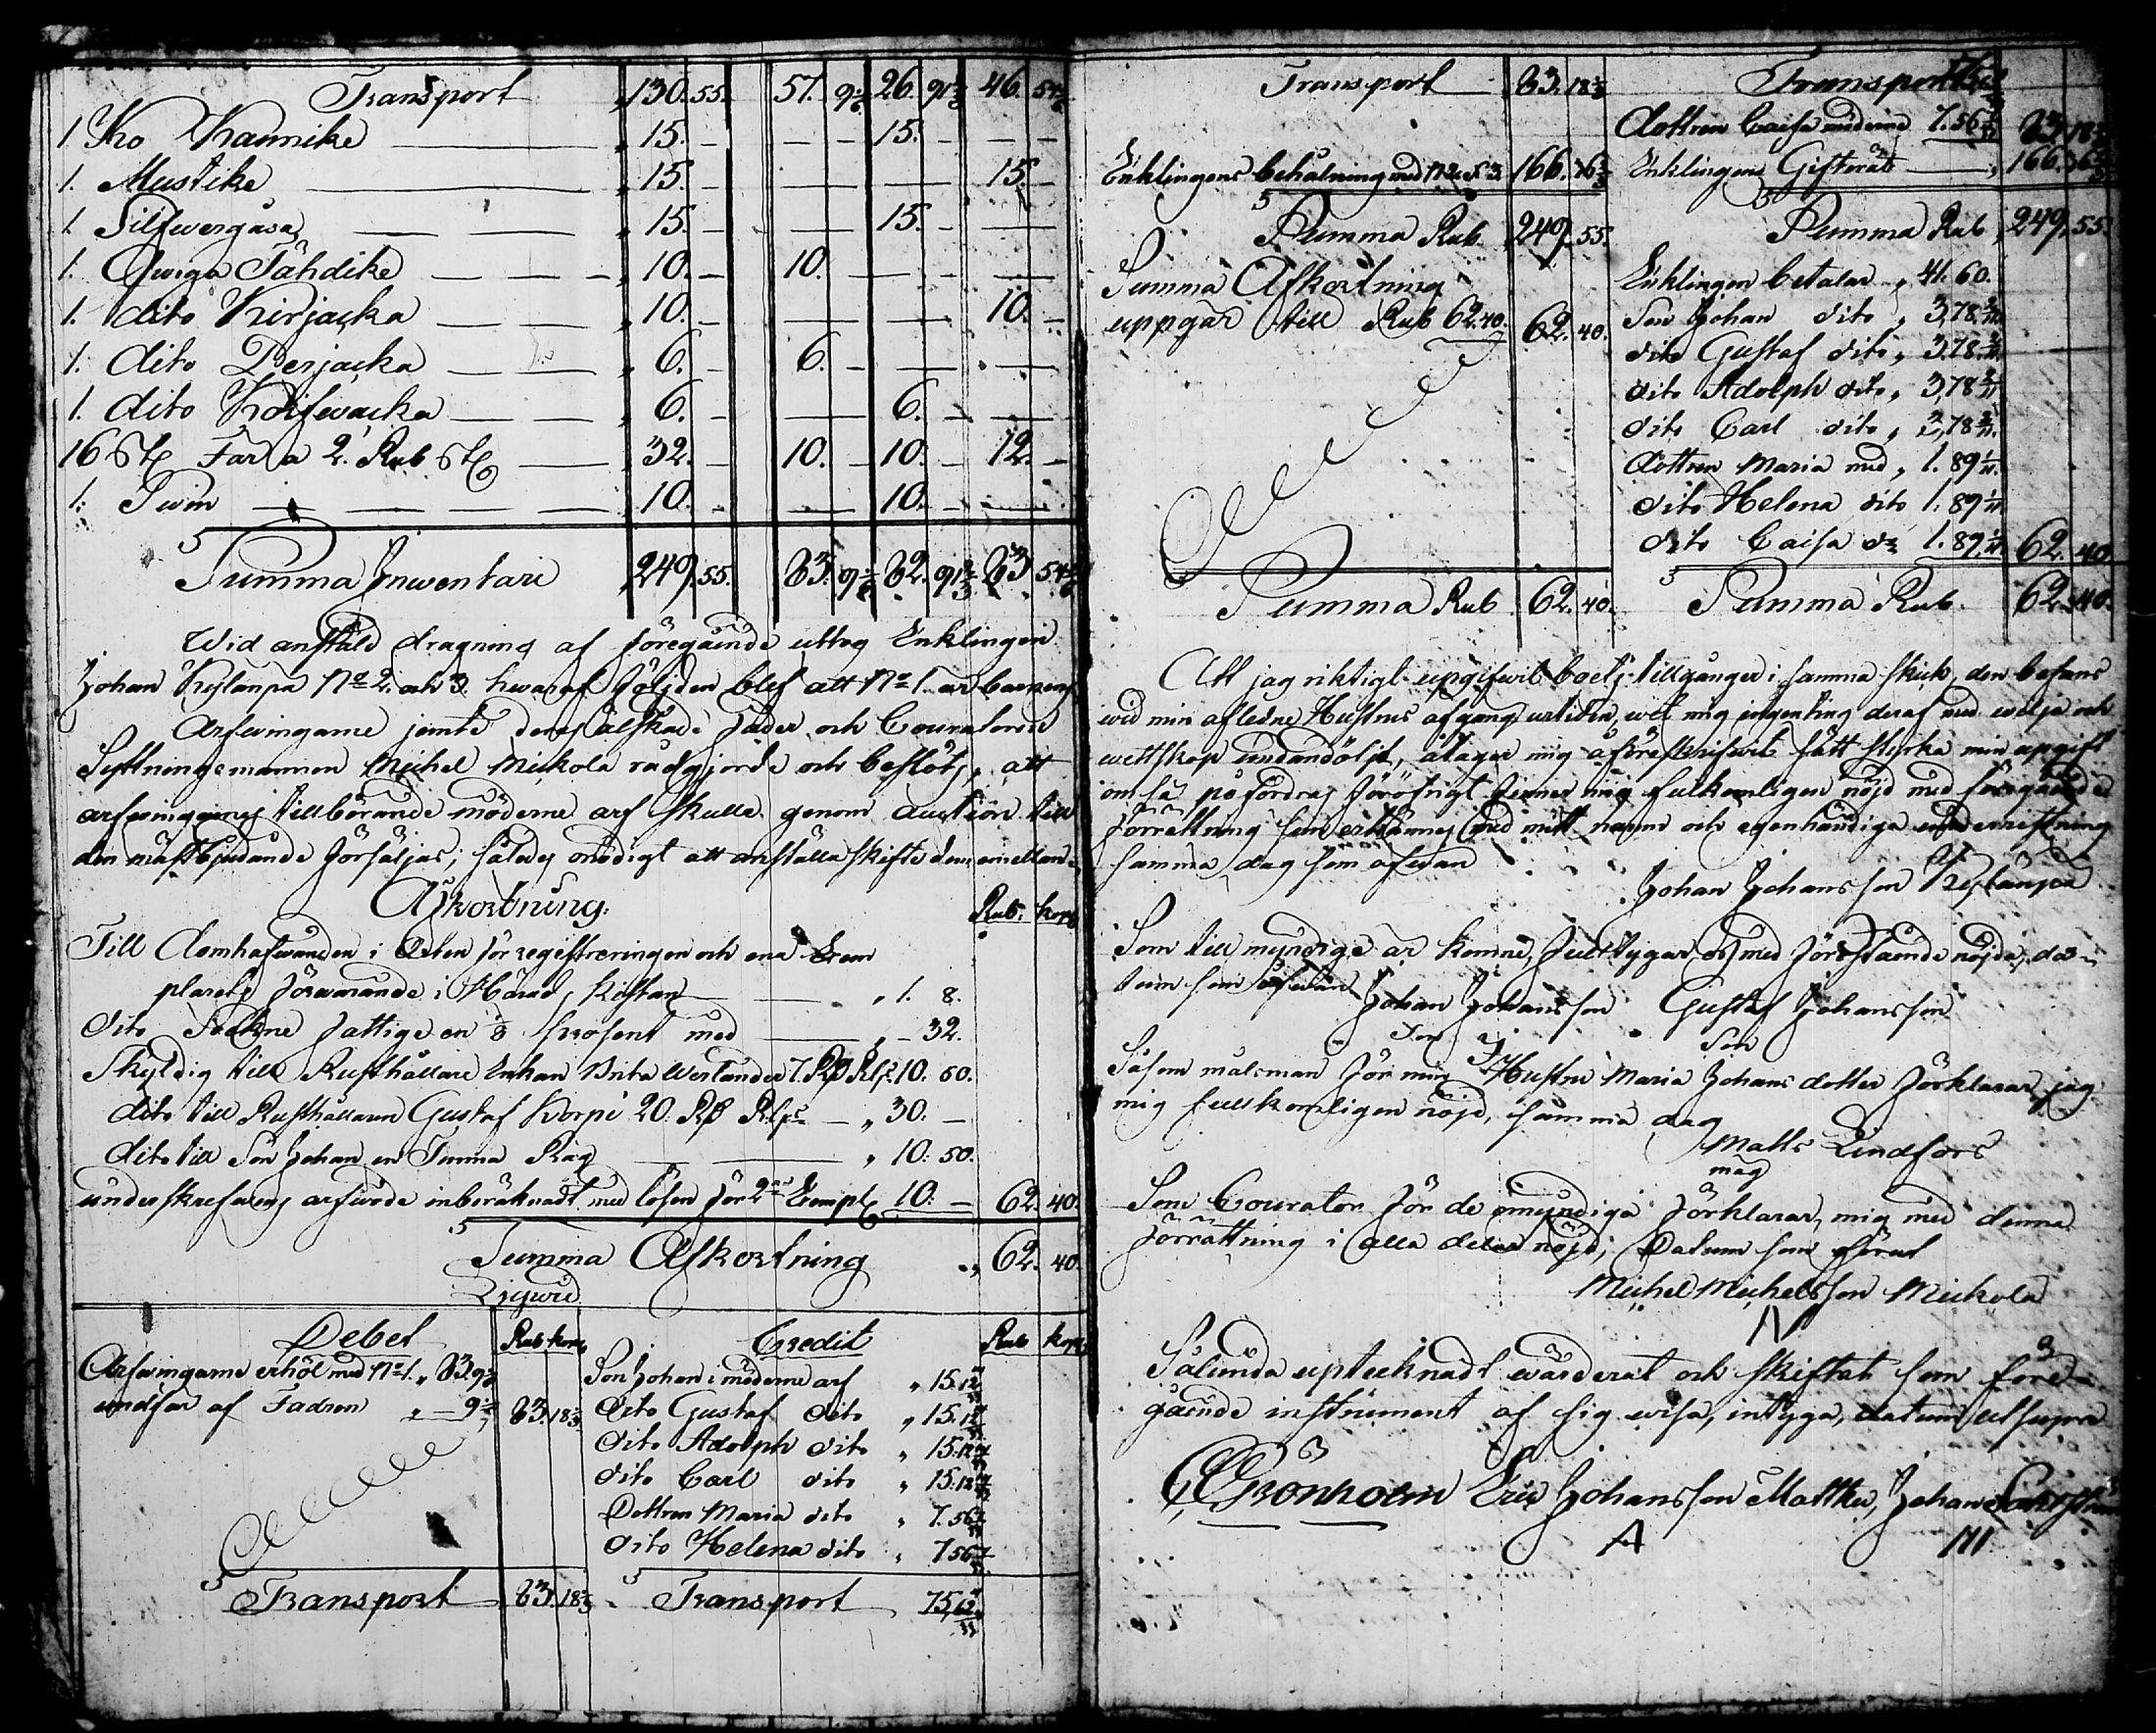 Transport 130. 55. 57. 9 1/6 26. 91 2/3 46. 54 1/6
1. Ko Kaunike 15. — — — 15. — — —
1. Mustike 15. — — — 15. —
1. Silfwergåsa 15. — — 15. — —
1. Qwiga Tähdike — — — 10. — 10. — — —
1. dito Kirjacka — — 10. — — — 10. —
1. dito Perjacka — — 6. — 6. — — —
1. dito Koifwacka — 6. — — 6. — —
16 St Får a 2. Rub St — 32. — 10. — 10. — 12. —
1. Swin — — — — 10. 10. —
Summa Inwentarii 249. 55. 83. 9 1/6 82. 91 2/3 83 54 1/6
Wid anstäld dragning af föregående uttog Enklingen
Johan Kylänpä No 2. och 3. hwaraf följden blef att No 1. är barnens
Arfwingarne jemte deras älskade Fader och Couratoren
Syttningsmannen Michel Mickola rådgjorde och beslöts, att
arfwingarnes tillhörande möderne arf skulle genom auction till
den mästbjudande försäljas; således onödigt att anställa skifte dem emellan
Afkortning. Rub. kop
Till Domhafwanden i Orten för registreringen och ena Exem
plarets förwarande i Härads kistan — „ 1. 8.
dito Sockne fattige en 1/8 procent med — „ — 32.
Skyldig till Rusthållare Enkan Brita Werlander 7. Rß Rbl. 10. 50.
dito till Rusthållaren Gustaf Korpi 20. Rß — „ 30. —
dito till Son Johan en Tunna Råg — „ 10. 50.
underskrefwens arfwode inberäknadt med lösen för 2ne Exempl 10. — 62. 40.
Summa Afkortning „ 62. 40.
Liqwid
Debet Rub kop Credit Rub kop
Arfwingarne erhöl med No 1. „ 83. 9 1/6 Son Johan i möderne arf „ 15. 12 4/11
undfår af Fadren „ — 9 1/6 83. 18 1/3 dito Gustaf dito „ 15. 12 4/11
dito Adolph dito „ 15. 12 4/11
dito Carl dito „ 15. 12 4/11
Dottren Maria dito „ 7. 56 2/11
dito Helena dito „ 7 56 2/11
Transport 83. 18 1/3 Transport 75,62
Transport 83. 18 1/3 Transport
Dottren Caisa möderne 7. 56 83. 18 1/3
Enklingens behålning med No 2 & 3 166. 36 2/3 Enklingens Giftorät — 166. 36 2/3
Summa Rub. 249. 55. Summa Rub 249. 55.
Summa Afkortning Enklingen betalar „ 41. 60.
uppgår till Rub 62. 40. 62. 40. Son Johan dito „ 3,78 2/11
dito Gustaf dito „ 3,78 2/11
dito Adolph dito „ 3,78 2/11
dito Carl dito „ 3,78 2/11
Dottren Maria med „ 1. 89 1/11
dito Helena dito 1. 89 1/11
dito Caisa do 1. 89 1/11 62. 40.
Summa Rub 62. 40. Summa Rub. 62. 40.
Att jag riktigt upgifwit boets tillgångar i samma skick, den befans
wid min afledne Hustrus afgång urtiden, wet mig ingenting deraf med wilja och
wettskap undandöljt, åtager mig å föreskrifwit sätt styrka min upgift
om så påfördras föröfrigt finner mig fulkomligen nöjd med föregående
förrättning som erkännes med mitt namn och egenhändiga underskrifning
samma dag som ofwan
Johan Johansson Kylänpä
Som till myndige år komne, fullt tygar oss med förestående nöjde, da-
tum som ofwan Johan Johansson Gustaf Johansson
Son Son
Såsom målsman för min Hustru Maria Johans dotter förklarar jag
mig fullkomligen nöjd, samma dag
Matts Lindfors
måg
Som Courator för de omyndiga förklarar mig med denna
förrättning i alla delar nöjd; Datum som förut
Michel Michelsson Mickola
Sålunda uptecknadt wärderat och skiftat som före-
gående instrument af sig wisa, intyga, datum utsupra
Grönholm Eric Johansson Mattku, Johan